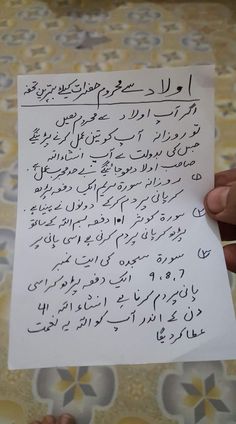 اولاد سے محروم حضرات کیلئے بہترین تحفہ
اگر آپ اولاد سے محروم ہیں
تو روزانہ آپ کو تین عمل کرنے پڑینگے
جس کی بدولت سے آپ انشاءاللہ
صاحب اولاد ہو جائینگے بے حد مجرب عمل ہے
① روزانہ سورۃ مریم ایک دفعہ پڑھ
کر پانی پر دم کر کے دونوں نے پینا ہے۔
② سورۃ کوثر 101 دفعہ بسم اللہ کے ساتھ
پڑھ کر پانی پر دم کرنی ہے اسی پانی پر
③ سورۃ سجدہ کی آیت نمبر
9،8،7 ایک دفعہ پڑھ کر اسی
پانی پر دم کرنا ہے انشاءاللہ 41
دن کے اندر آپ کو اللہ یہ نعمت
عطا کر دیگا